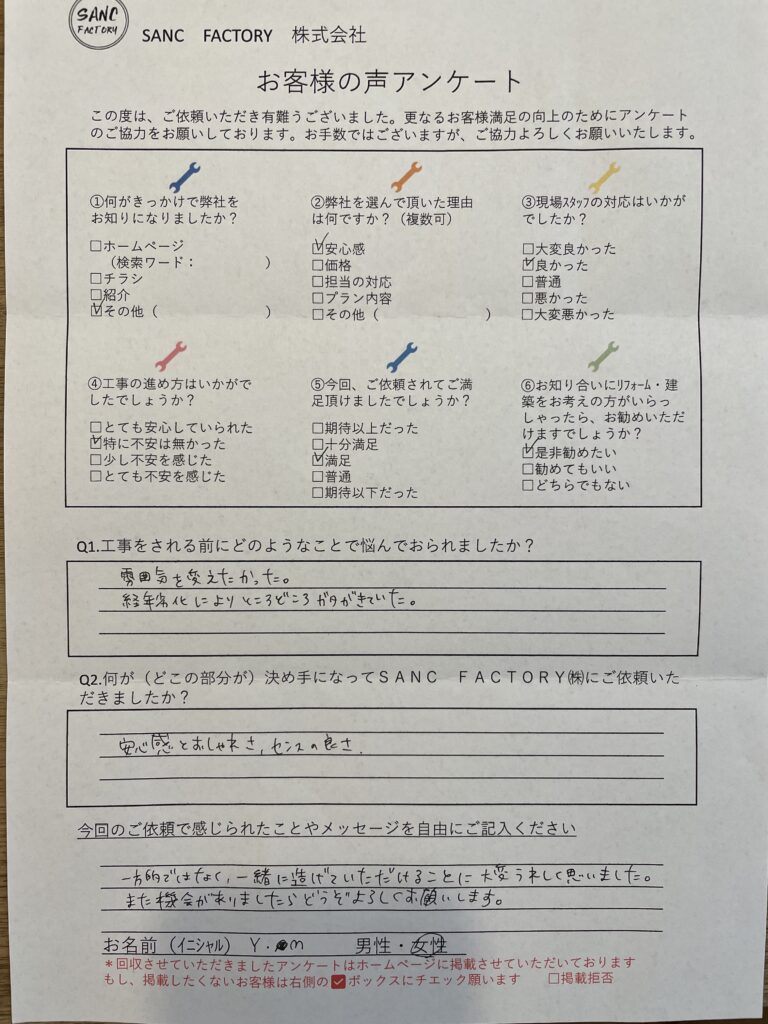 SANC
FACTORY
SANC FACTORY 株式会社
お客様の声アンケート
この度は、ご依頼いただき有難うございました。更なるお客様満足の向上のためにアンケート
のご協力をお願いしております。お手数ではございますが、ご協力よろしくお願いいたします。
①何がきっかけで弊社を
お知りになりましたか？
□ホームページ
（検索ワード：　　　　　）
□チラシ
□紹介
☑その他（　　　　　　　）
②弊社を選んで頂いた理由
は何ですか？（複数可）
☑安心感
□価格
□担当の対応
□プラン内容
□その他（　　　　　　　）
③現場ｽﾀｯﾌの対応はいかが
でしたか？
□大変良かった
☑良かった
□普通
□悪かった
□大変悪かった
④工事の進め方はいかがで
したでしょうか？
□とても安心していられた
☑特に不安は無かった
□少し不安を感じた
□とても不安を感じた
⑤今回、ご依頼されてご満
足頂けましたでしょうか？
□期待以上だった
□十分満足
☑満足
□普通
□期待以下だった
⑥お知り合いにﾘﾌｫｰﾑ・建
築をお考えの方がいらっ
しゃったら、お勧めいただ
けますでしょうか？
☑是非勧めたい
□勧めてもいい
□どちらでもない
Q1.工事をされる前にどのようなことで悩んでおられましたか？
雰囲気を変えたかった。
経年劣化によりところどころガタがきていた。
Q2.何が（どこの部分が）決め手になってＳＡＮＣ　ＦＡＣＴＯＲＹ㈱にご依頼いた
だきましたか？
安心感とおしゃれさ,センスの良さ.
今回のご依頼で感じられたことやメッセージを自由にご記入ください
一方的ではなく,一緒に造げていただけることに大変うれしく思いました。
また機会がありましたらどうぞよろしくお願いします。
お名前（ｲﾆｼｬﾙ） Y．m　男性・女性
＊回収させていただきましたアンケートはホームページに掲載させていただいております
もし、掲載したくないお客様は右側の☑ボックスにチェック願います　□掲載拒否